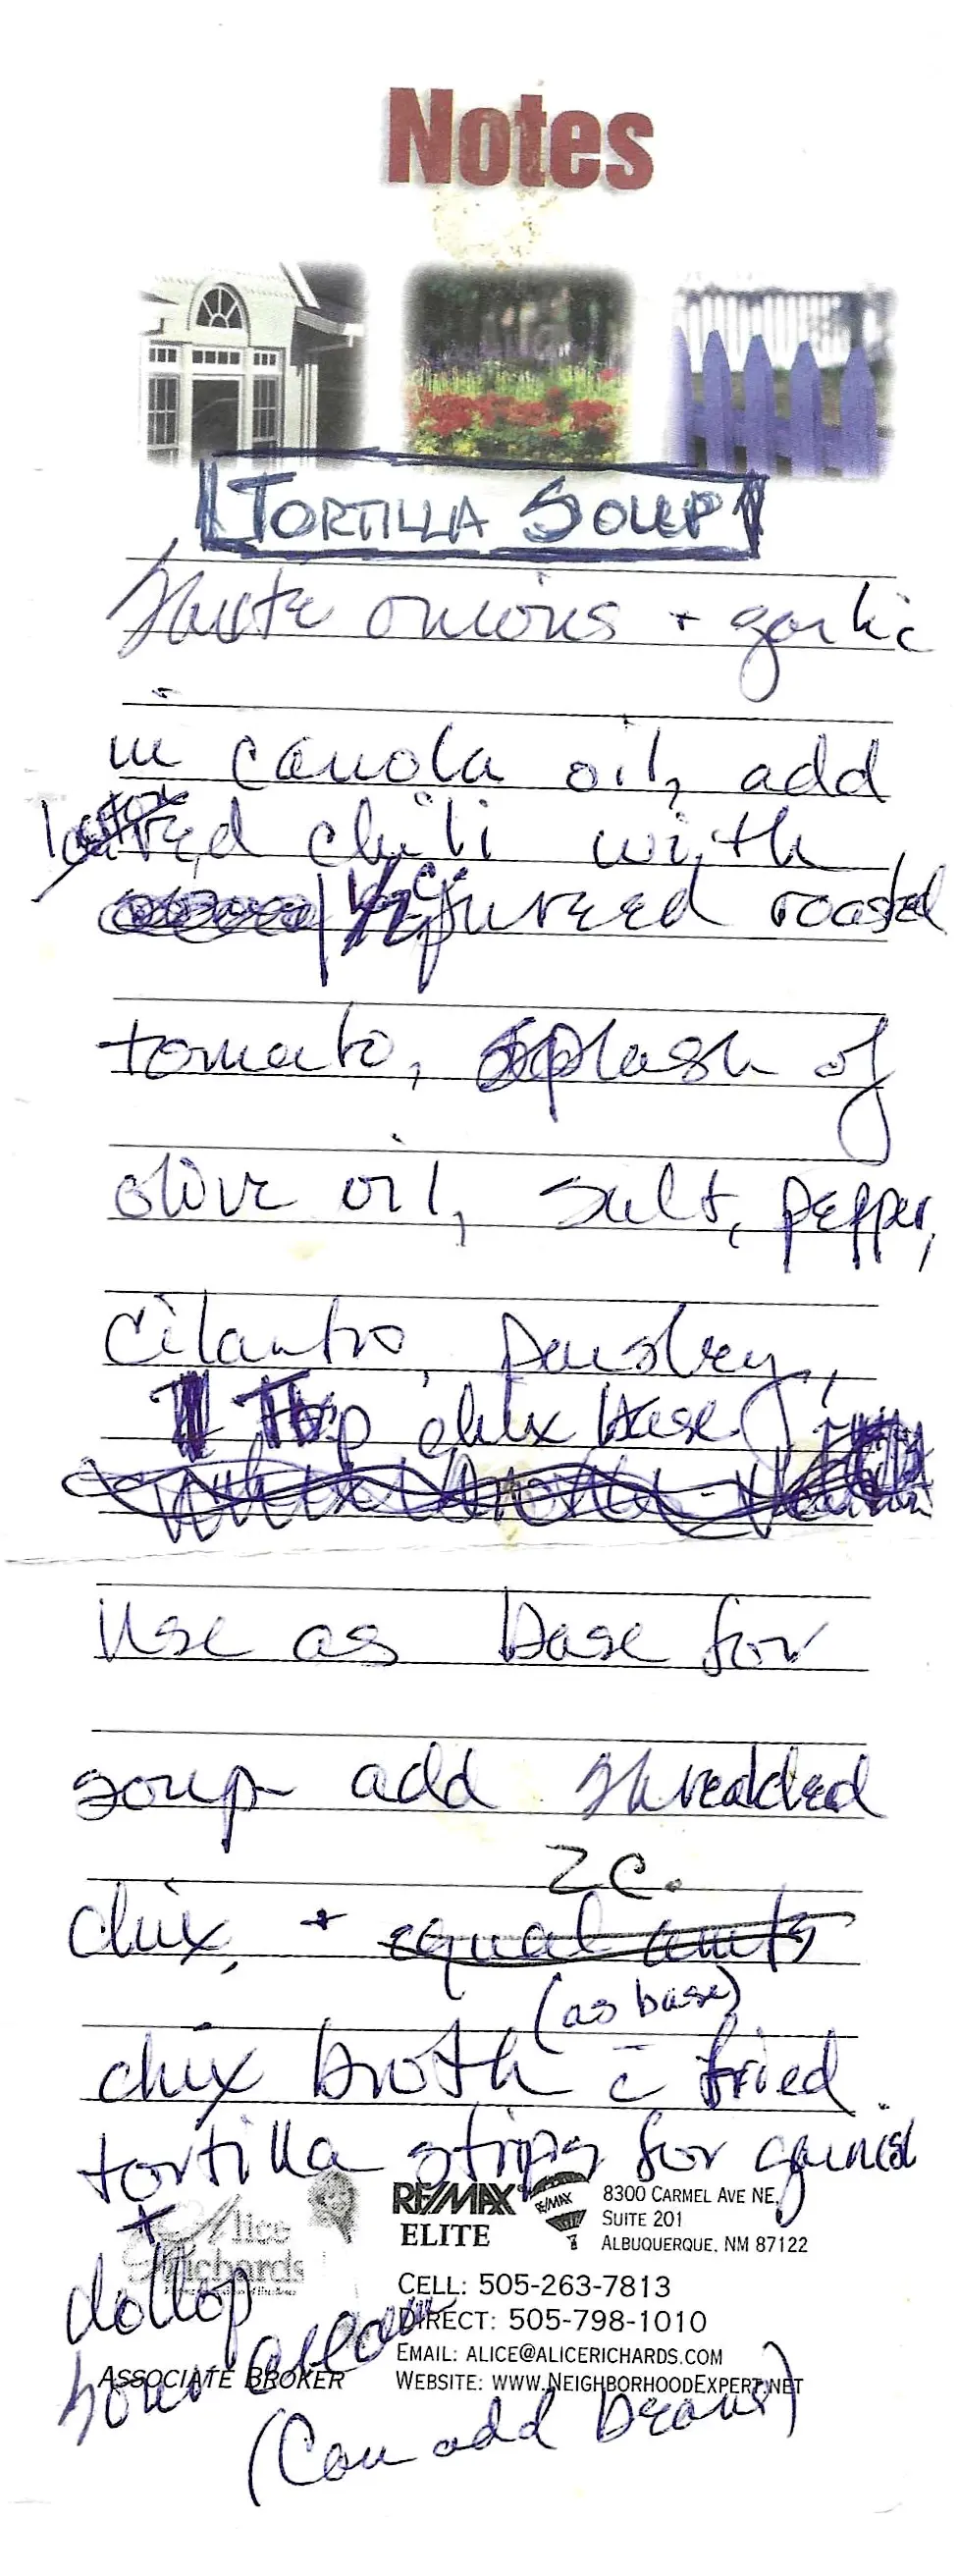 Notes
TORTILLA SOUP
Saute onions + garlic
in canola oil, add
red chili with
1/2 c. pureed roasted
tomato, splash of
olive oil, salt, pepper,
cilantro, parsley,
1 Tbsp chix base
Use as base for
soup add shredded
2 c.
chix, + equal amts
(as base)
chix broth c̄ fried
tortilla strips for garnish
+
dollop
sour cream
(Can add beans)
Alice
Richards
ASSOCIATE BROKER
RE/MAX
ELITE
RE/MAX
8300 CARMEL AVE NE,
SUITE 201
ALBUQUERQUE, NM 87122
CELL: 505-263-7813
DIRECT: 505-798-1010
EMAIL: ALICE@ALICERICHARDS.COM
WEBSITE: WWW.NEIGHBORHOODEXPERT.NET